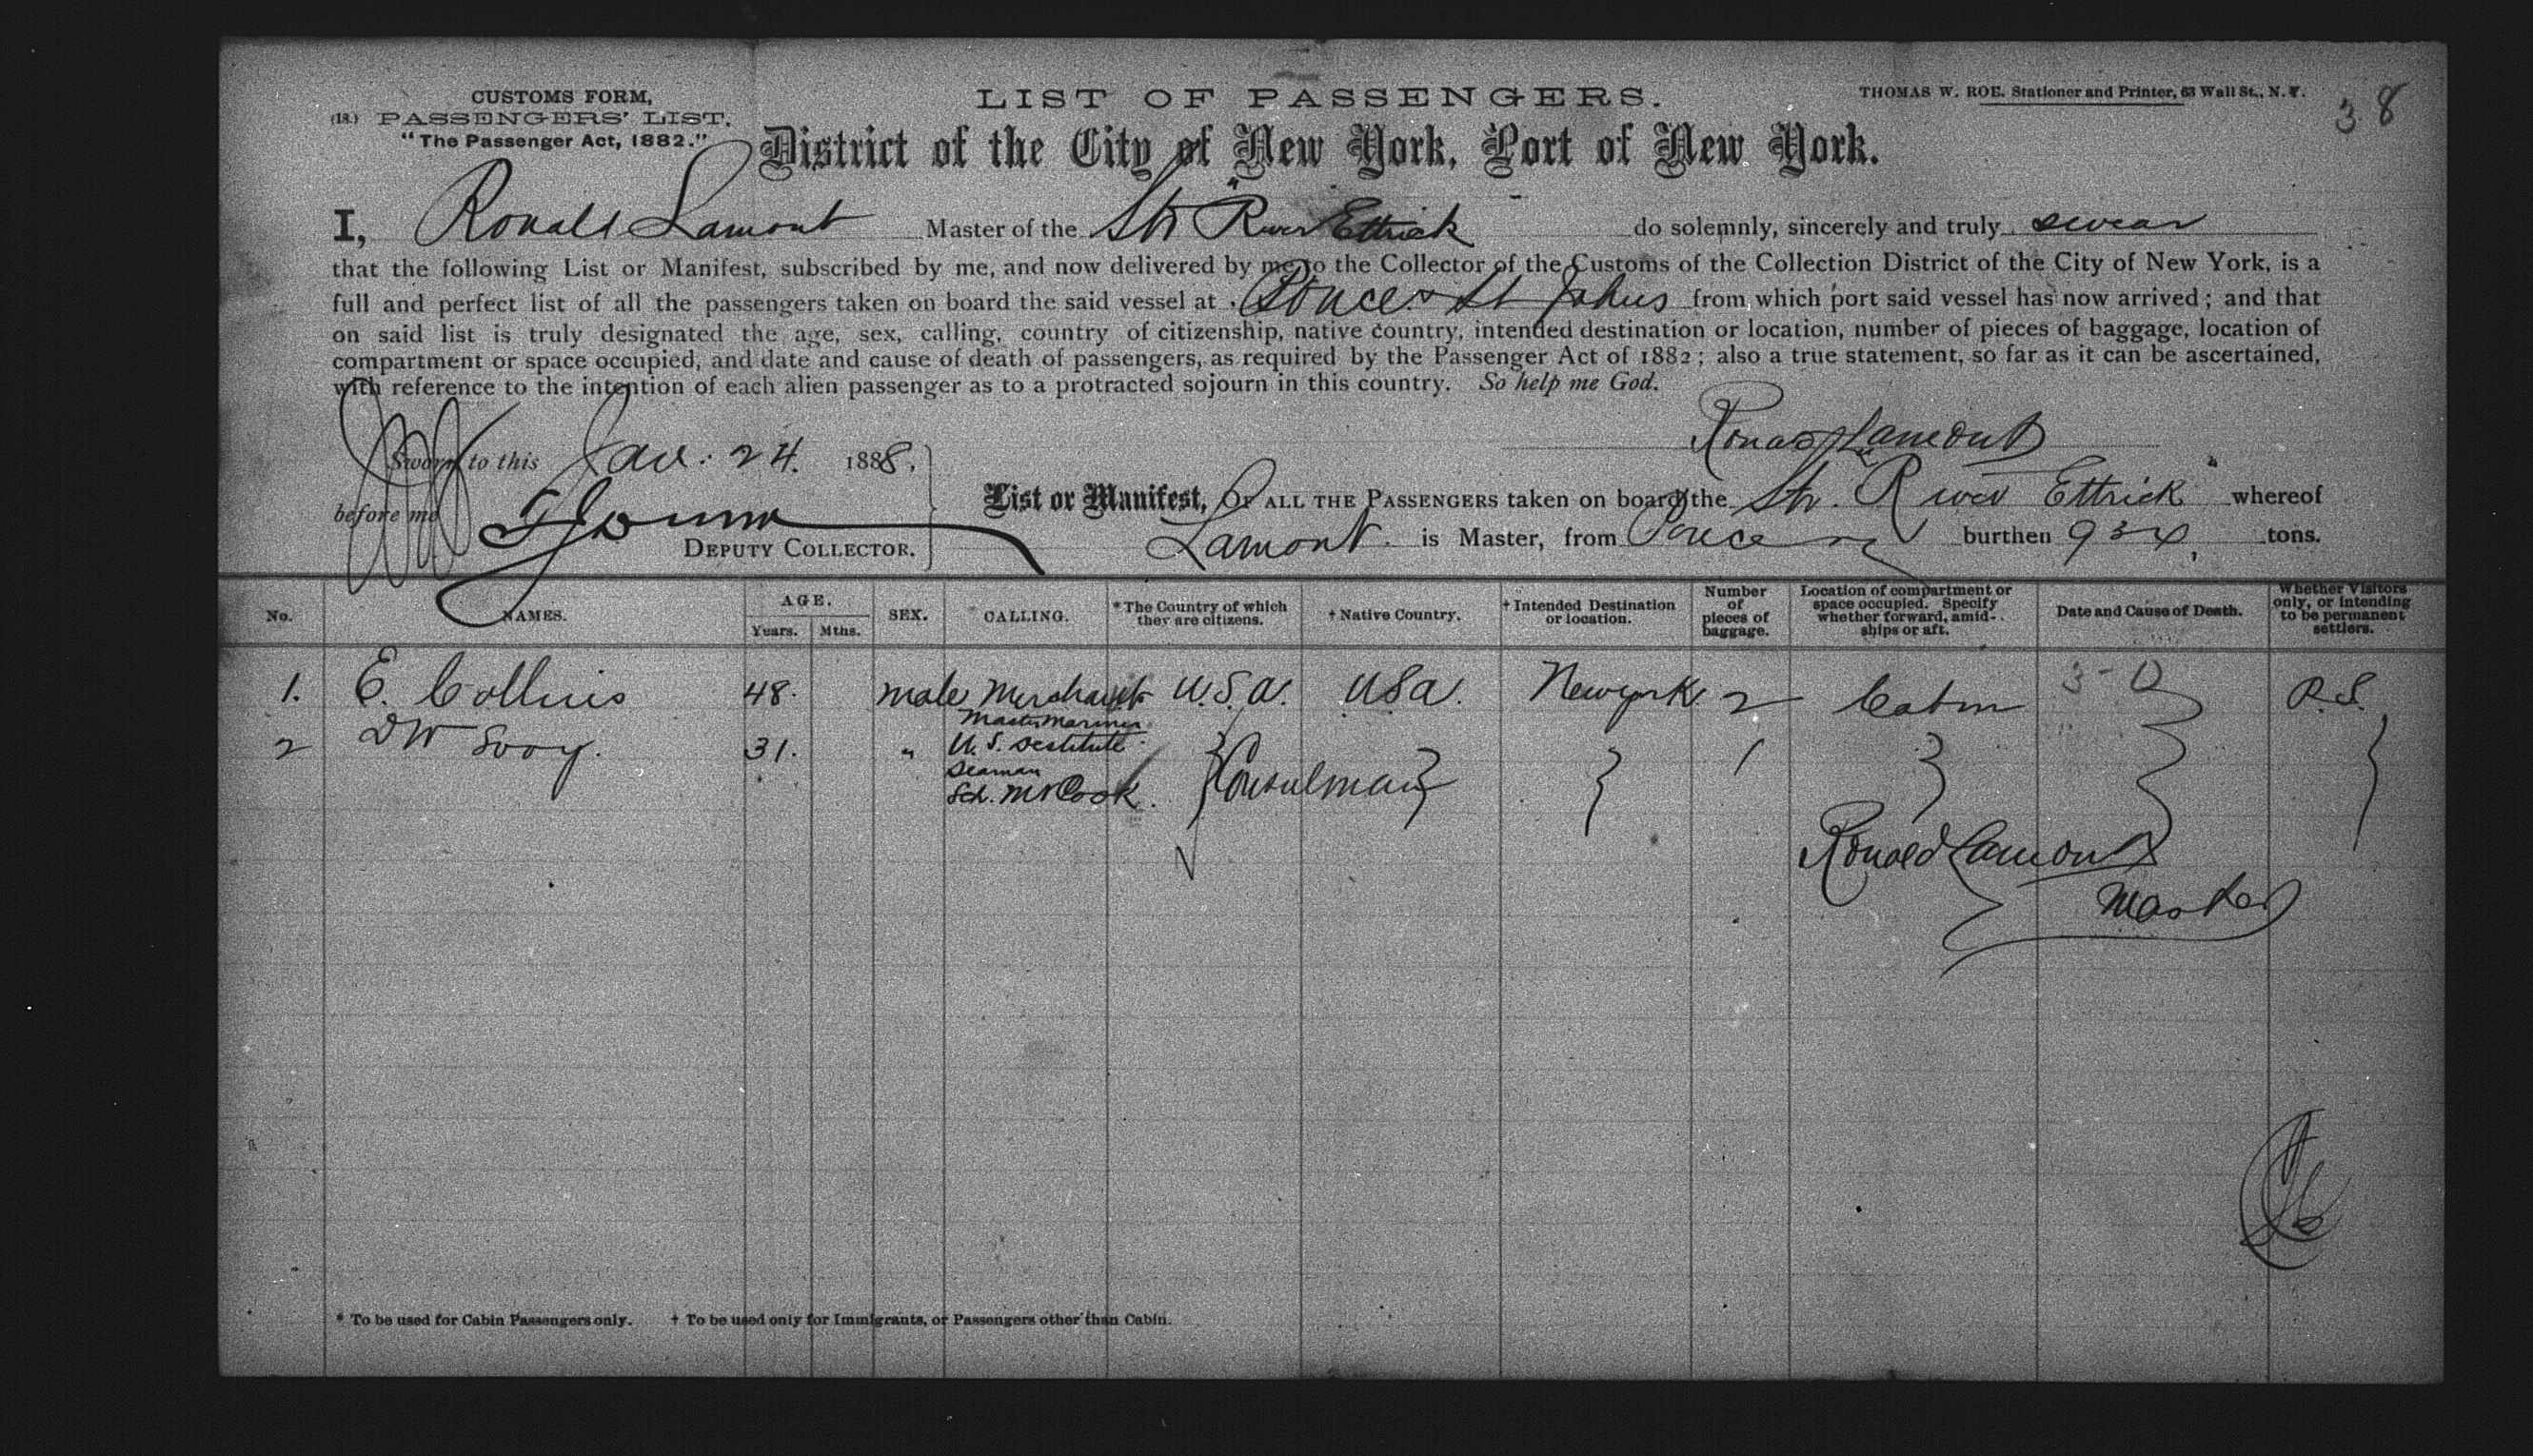 CUSTOMS FORM,
(18.) PASSENGERS' LIST.
"The Passenger Act, 1882."
LIST OF PASSENGERS.
THOMAS W. ROE. Stationer and Printer, 63 Wall St., N. Y.
38
District of the City of New York, Port of New York.
I, Ronald Lamont Master of the Str "River Ettrick do solemnly, sincerely and truly swear
that the following List or Manifest, subscribed by me, and now delivered by me to the Collector of the Customs of the Collection District of the City of New York, is a
full and perfect list of all the passengers taken on board the said vessel at Ponce & St Johns from which port said vessel has now arrived; and that
on said list is truly designated the age, sex, calling, country of citizenship, native country, intended destination or location, number of pieces of baggage, location of
compartment or space occupied, and date and cause of death of passengers, as required by the Passenger Act of 1882; also a true statement, so far as it can be ascertained,
with reference to the intention of each alien passenger as to a protracted sojourn in this country. So help me God.
Ronald Lamont
Sworn to this Jan. 24. 1888,
before me
DEPUTY COLLECTOR.
List or Manifest, OF ALL THE PASSENGERS taken on board the Str. River Ettrick" whereof
Lamont. is Master, from Ponce burthen 934, tons.
No. NAMES. AGE. Years. Mths. SEX. CALLING. * The Country of which they are citizens. † Native Country. † Intended Destination or location. Number of pieces of baggage. Location of compartment or space occupied. Specify whether forward, amidships or aft. Date and Cause of Death. Whether Visitors only, or intending to be permanent settlers.
1. E. Collins 48. male Merchant U.S.A. USA. Newyork 2 Cabin P.S.
2 DW 31. " Master Mariner U.S. Destitute Seaman Sch. Cook. Consulman 1
Ronald Lamont
Master
* To be used for Cabin Passengers only. † To be used only for Immigrants, or Passengers other than Cabin.